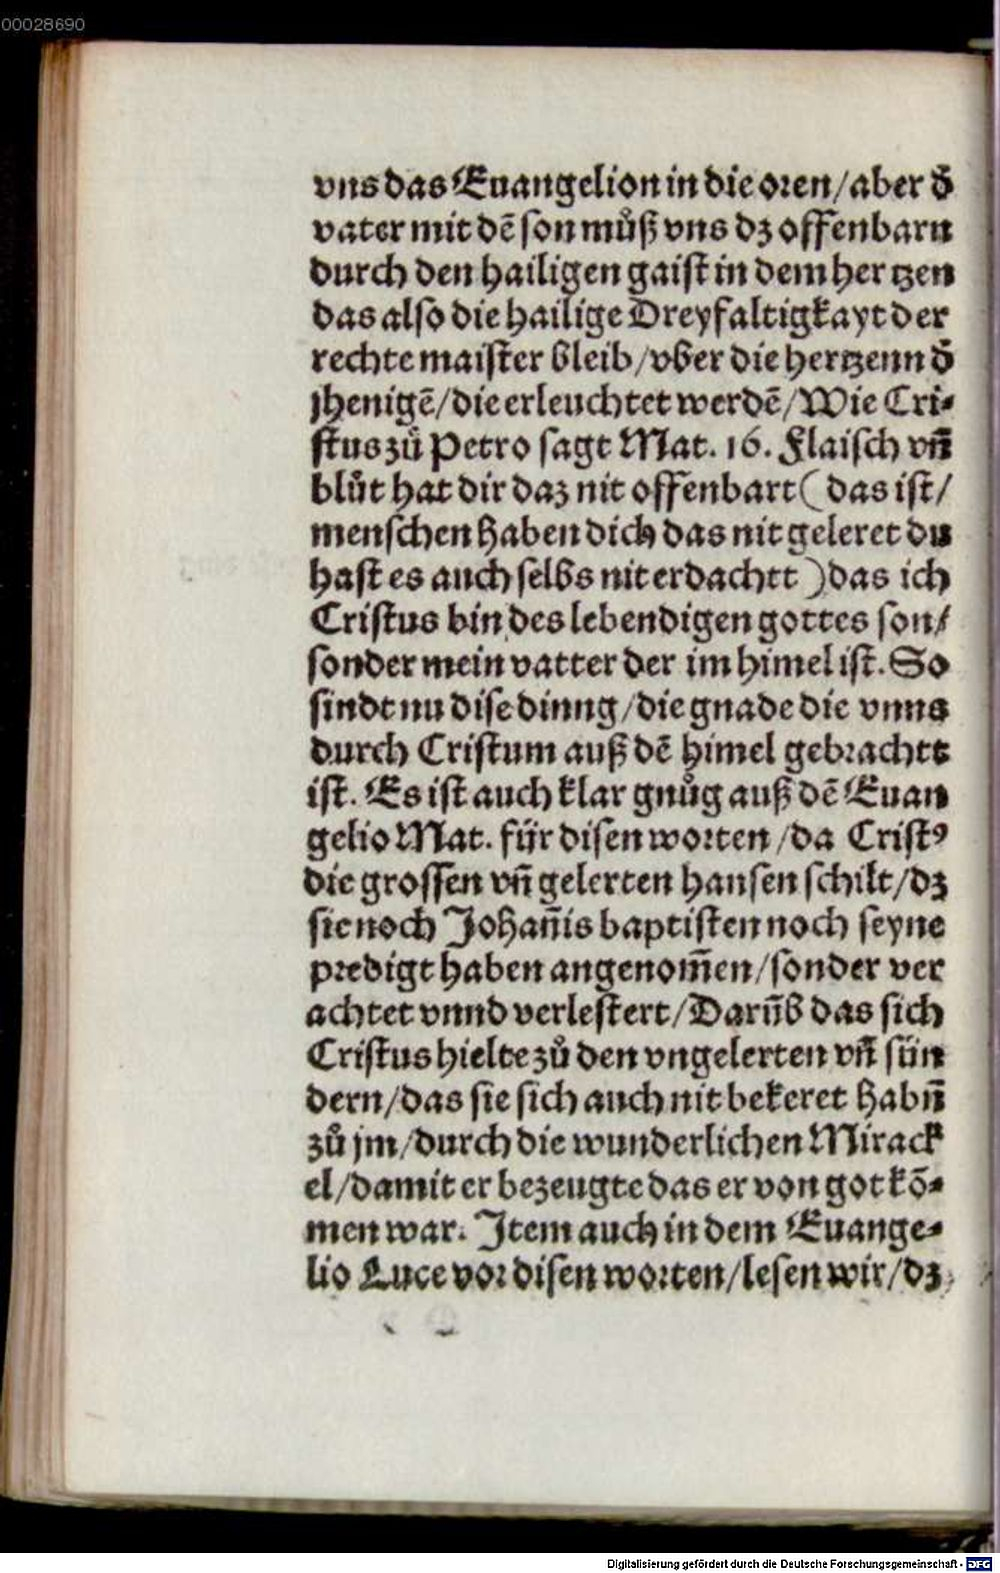 00028690
vns das Euangelion in die oren/aber d̄
vater mit dē son můß vns dz offenbarn
durch den hailigen gaist in dem hertzen
das also die hailige Dreyfaltigkayt der
rechte maister bleib/vber die hertzenn d̄
jhenigē/die erleuchtet werdē/Wie Cri⸗
stus zů Petro sagt Mat. 16. Flaisch vn̄
blůt hat dir daz nit offenbart (das ist/
menschen haben dich das nit geleret du
hast es auch selbs nit erdachtt) das ich
Cristus bin des lebendigen gottes son/
sonder mein vatter der im himel ist. So
sindt nu dise dinng/die gnade die vnns
durch Cristum auß dē himel gebrachtt
ist. Es ist auch klar gnůg auß dē Euan
gelio Mat. für disen worten/da Cristꝰ
die grossen vn̄ gelerten hansen schilt/dz
sie noch Johan̄is baptisten noch seyne
predigt haben angenom̄en/sonder ver
achtet vnnd verlestert/Darūb das sich
Cristus hielte zů den vngelerten vn̄ sün
dern/das sie sich auch nit bekeret habn̄
zů jm/durch die wunderlichen Mirack
el/damit er bezeugte das er von got kō⸗
men war. Item auch in dem Euange⸗
lio Luce vor disen worten/lesen wir/dz
Digitalisierung gefördert durch die Deutsche Forschungsgemeinschaft - DFG